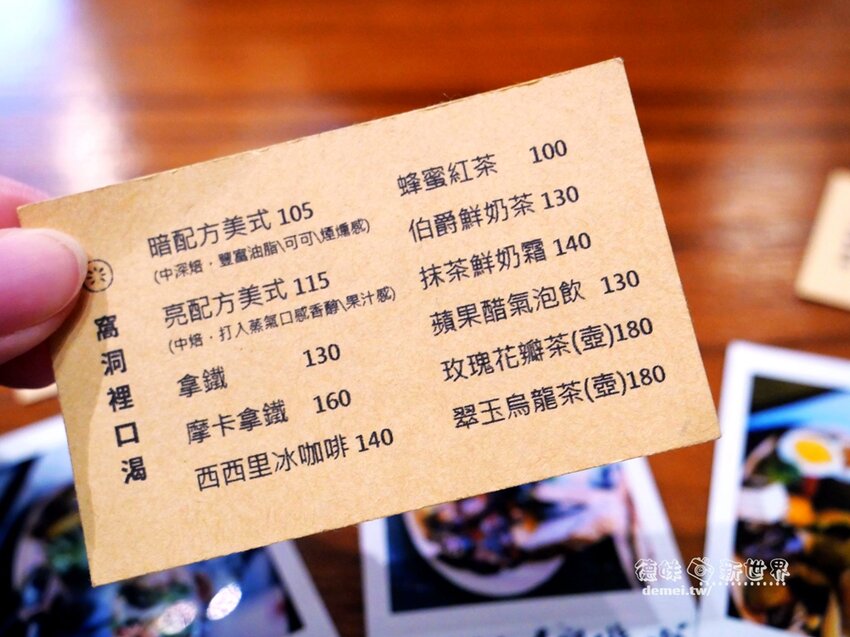 窩洞裡口渴
暗配方美式 105
(中深焙．豐富油脂\可可\煙燻感)
亮配方美式 115
(中焙．打入蒸氣口感香醇\果汁感)
拿鐵 130
摩卡拿鐵 160
西西里冰咖啡 140
蜂蜜紅茶 100
伯爵鮮奶茶 130
抹茶鮮奶霜 140
蘋果醋氣泡飲 130
玫瑰花瓣茶(壺)180
翠玉烏龍茶(壺)180
德味新世界
demei.tw/